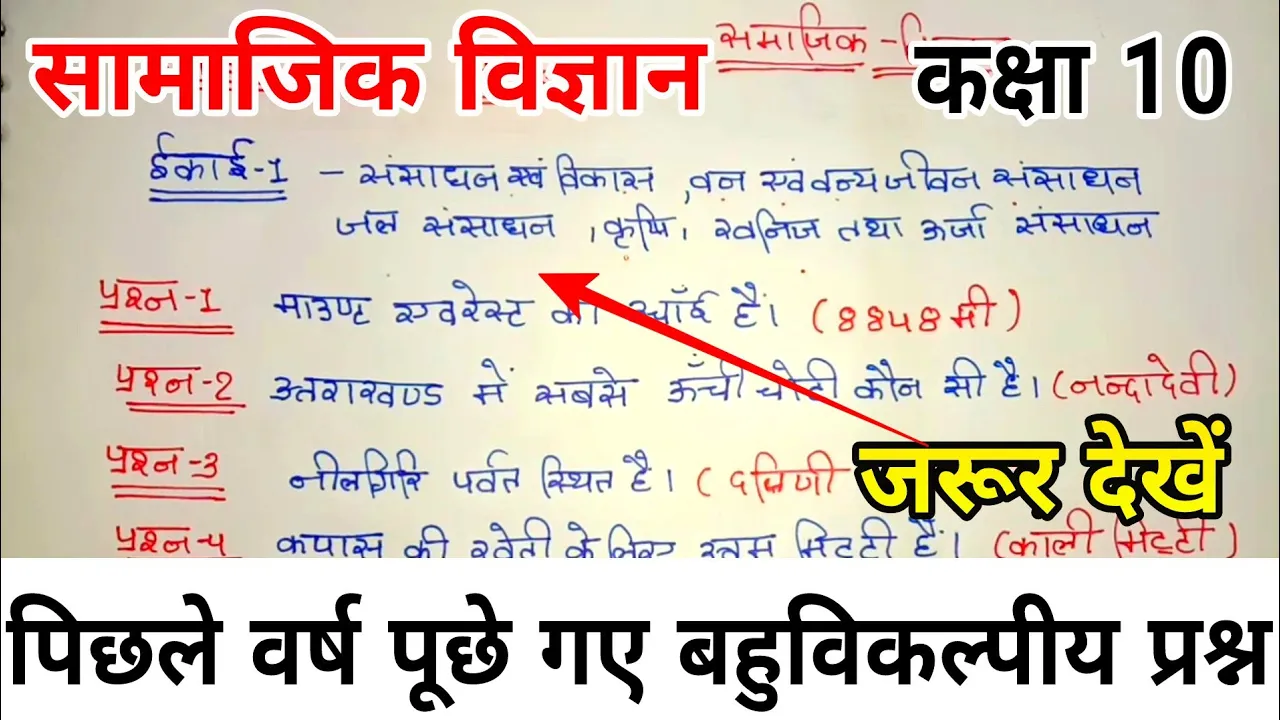 सामाजिक विज्ञान
सामाजिक -
कक्षा 10
ईकाई-1 - संसाधन एवं विकास , वन एवं वन्य जीवन संसाधन
जल संसाधन , कृषि, खनिज तथा ऊर्जा संसाधन
प्रश्न-1 माउण्ट एवरेस्ट की ऊँचाँई है। (8848 मी)
प्रश्न-2 उत्तराखण्ड में सबसे ऊँची चोटी कौन सी है। (नन्दादेवी)
प्रश्न-3 नीलगिरि पर्वत स्थित है। (दक्षिणी
जरूर देखें
प्रश्न-4 कपास की खेती के लिए उत्तम मिट्टी है। (काली मिट्टी)
पिछले वर्ष पूछे गए बहुविकल्पीय प्रश्न